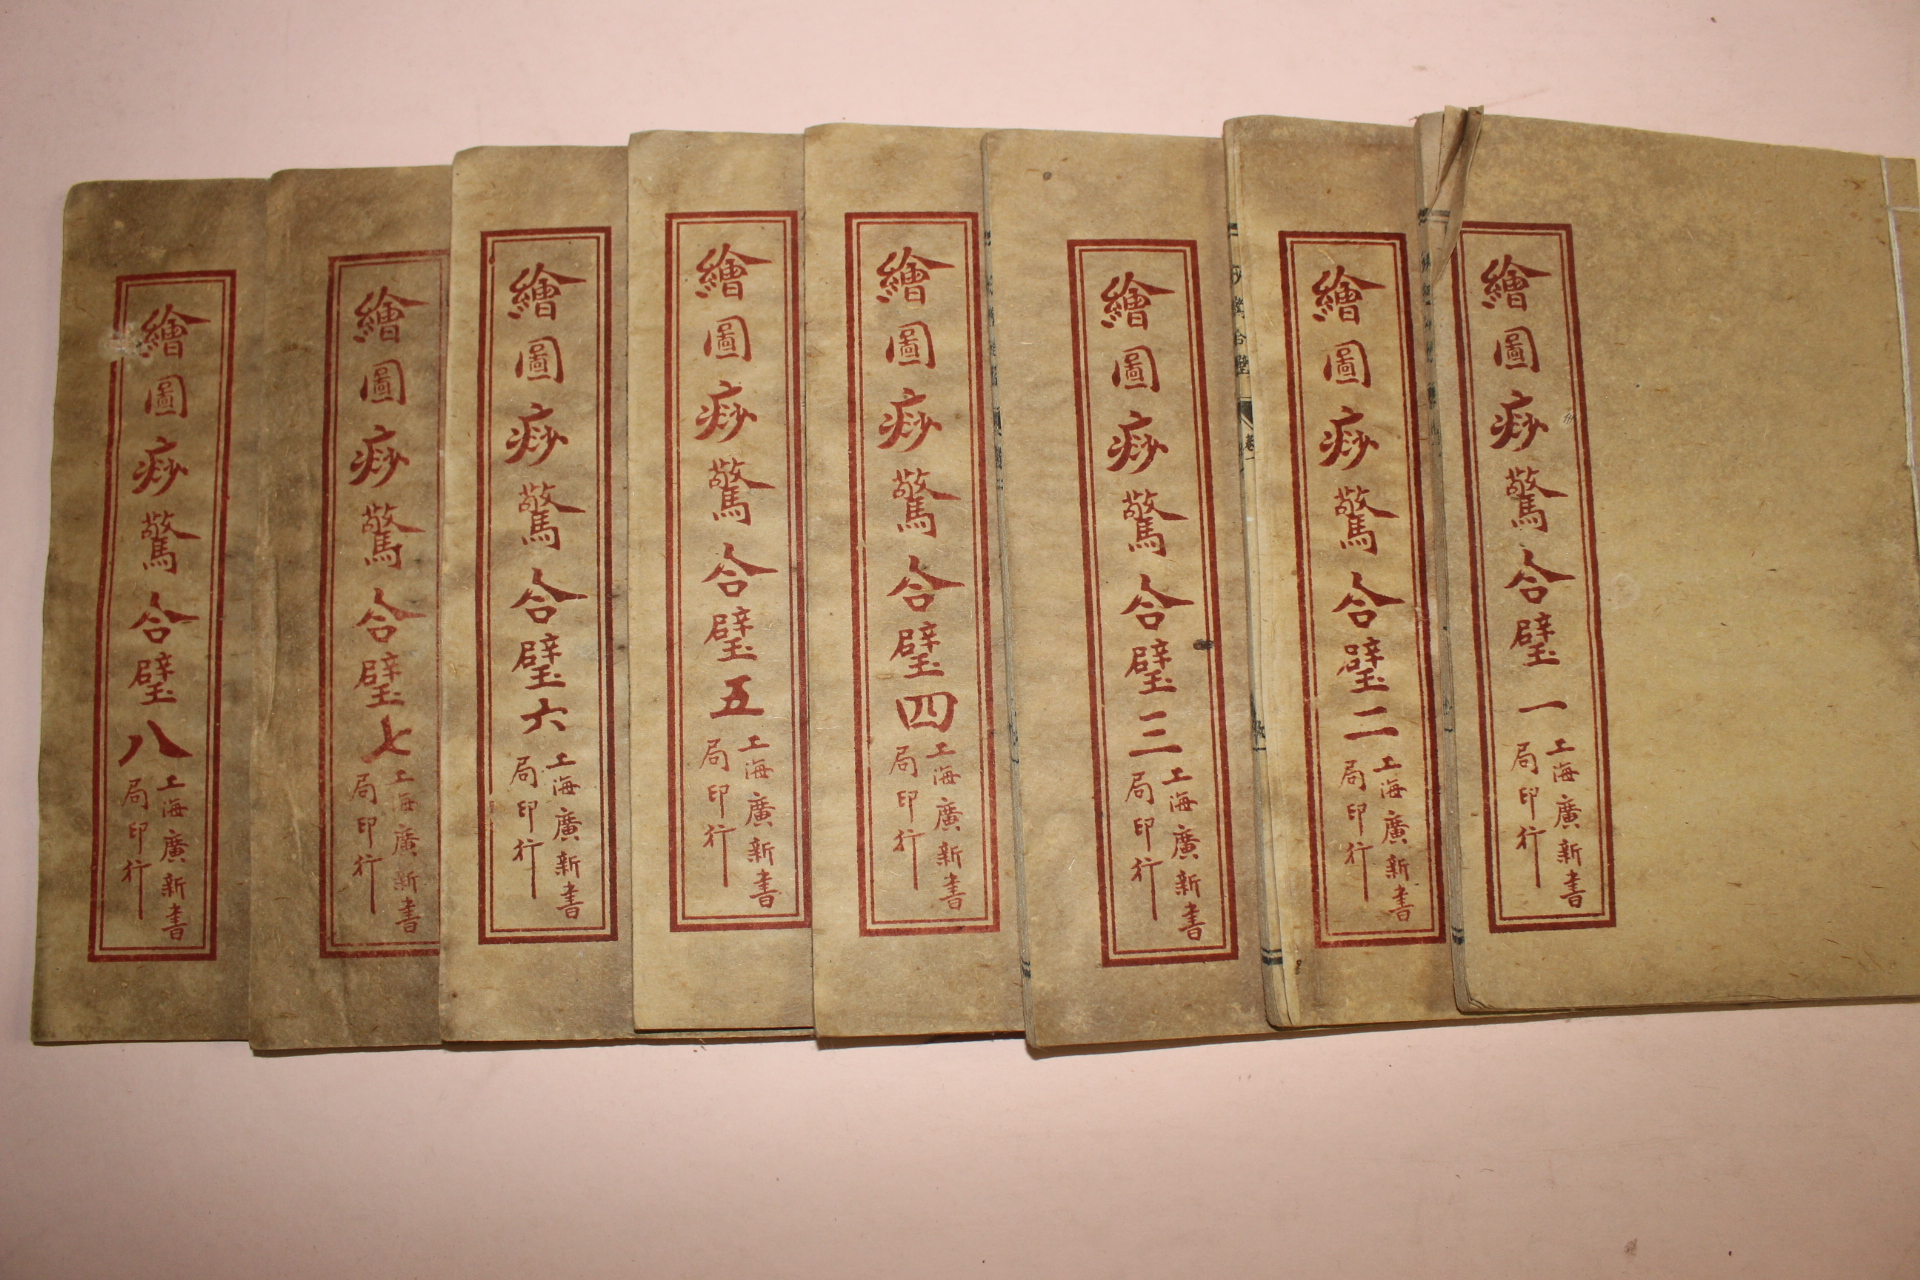 繪圖痧驚合璧一
上海廣新書
局印行
繪圖痧驚合璧二
上海廣新書
局印行
繪圖痧驚合璧三
上海廣新書
局印行
繪圖痧驚合璧四
上海廣新書
局印行
繪圖痧驚合璧五
上海廣新書
局印行
繪圖痧驚合璧六
上海廣新書
局印行
繪圖痧驚合璧七
上海廣新書
局印行
繪圖痧驚合璧八
上海廣新書
局印行